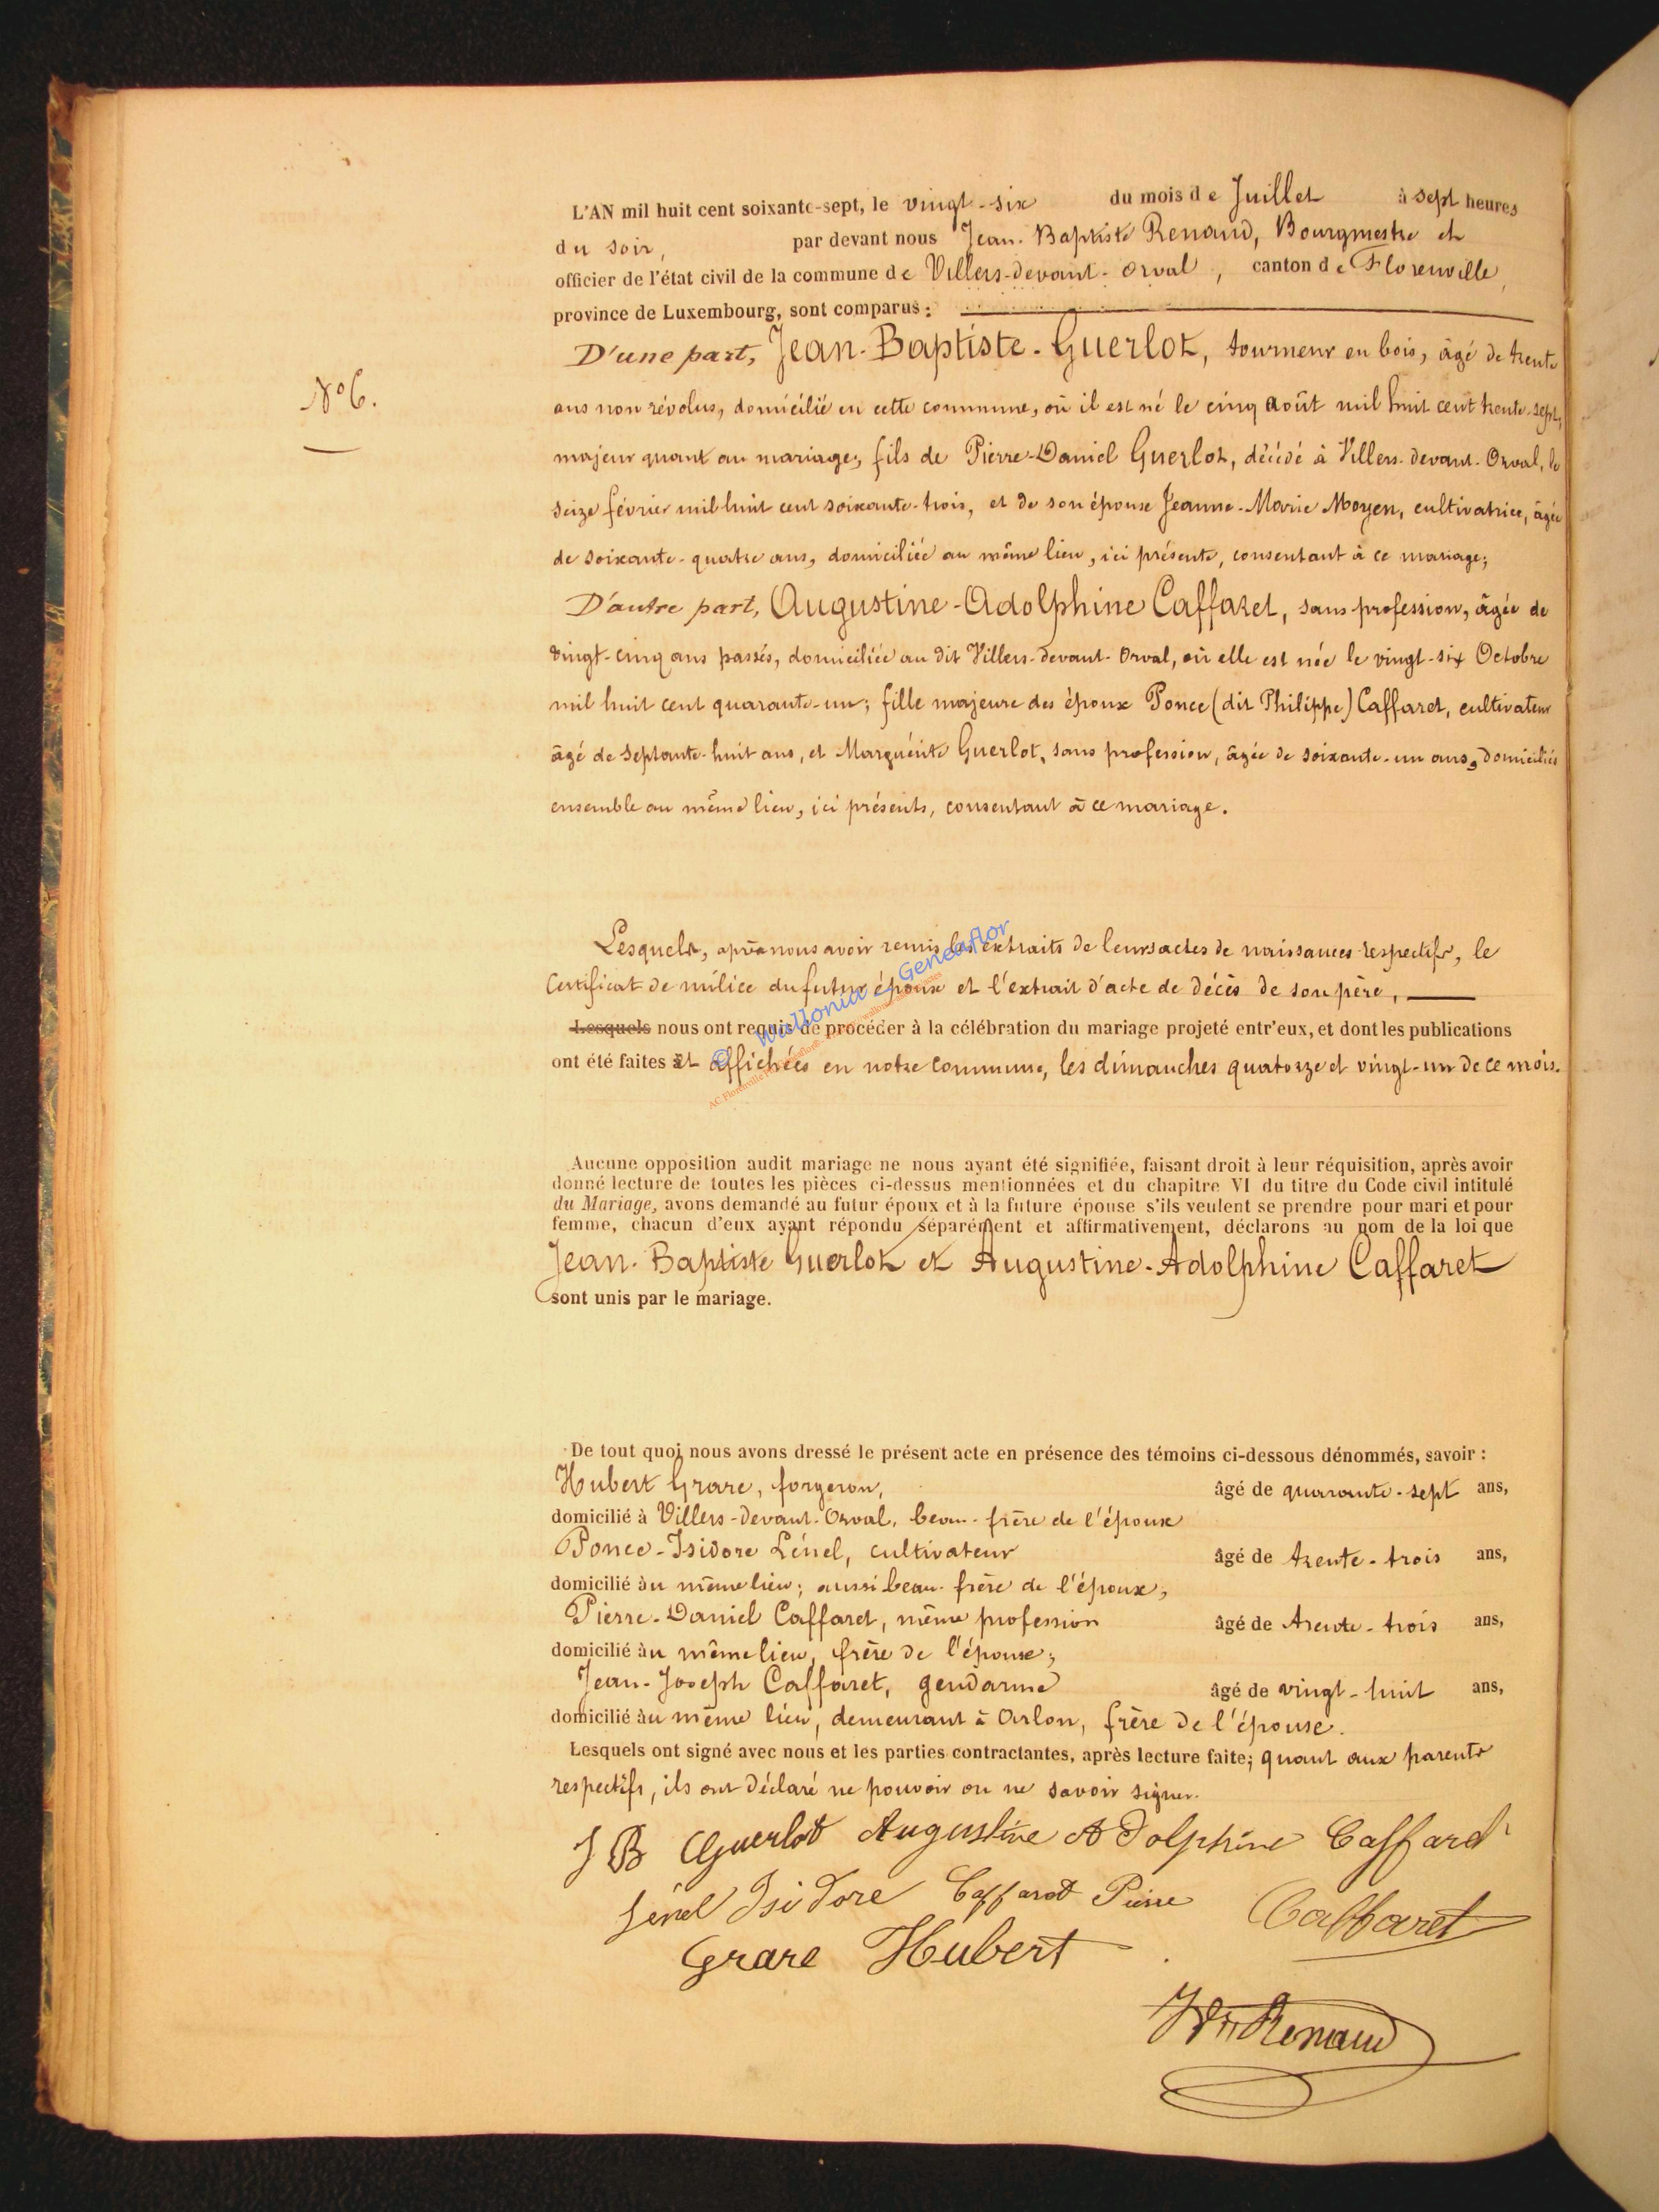 L'AN mil huit cent soixante-sept, le vingt-six du mois de Juillet à sept heures
du soir, par devant nous Jean-Baptiste Renaud, Bourgmestre et
officier de l'état civil de la commune de Villers-devant-Orval, canton de Florenville,
province de Luxembourg, sont comparus :
D'une part, Jean-Baptiste-Guerlot, tourneur en bois, âgé de trente
N° 6.
ans non révolus, domicilié en cette commune, où il est né le cinq août mil huit cent trente-sept,
majeur quant au mariage, fils de Pierre-Daniel Guerlot, décédé à Villers-devant-Orval, le
seize février mil huit cent soixante-trois, et de son épouse Jeanne-Marie Moyen, cultivatrice, âgée
de soixante-quatre ans, domiciliée au même lieu, ici présente, consentant à ce mariage;
D'autre part, Augustine-Adolphine Caffaret, sans profession, âgée de
vingt-cinq ans passés, domiciliée au dit Villers-devant-Orval, où elle est née le vingt-six Octobre
mil huit cent quarante-un; fille majeure des époux Ponce (dit Philippe) Caffaret, cultivateur
âgé de septante-huit ans, et Marguérite Guerlot, sans profession, âgée de soixante-un ans, domiciliés
ensemble au même lieu, ici présents, consentant à ce mariage.
Lesquels, après nous avoir remis les extraits de leurs actes de naissances respectifs, le
certificat de milice du futur époux et l'extrait d'acte de décès de son père,
© Wallonia - Geneaflor
Lesquels nous ont requis de procéder à la célébration du mariage projeté entr'eux, et dont les publications
ont été faites et affichées en notre commune, les dimanches quatorze et vingt-un de ce mois.
Aucune opposition audit mariage ne nous ayant été signifiée, faisant droit à leur réquisition, après avoir
donné lecture de toutes les pièces ci-dessus mentionnées et du chapitre VI du titre du Code civil intitulé
du Mariage, avons demandé au futur époux et à la future épouse s'ils veulent se prendre pour mari et pour
femme, chacun d'eux ayant répondu séparément et affirmativement, déclarons au nom de la loi que
Jean-Baptiste Guerlot et Augustine-Adolphine Caffaret
sont unis par le mariage.
De tout quoi nous avons dressé le présent acte en présence des témoins ci-dessous dénommés, savoir :
Hubert Grare, forgeron, âgé de quarante-sept ans,
domicilié à Villers-devant-Orval, beau-frère de l'époux
Ponce-Isidore Lénel, cultivateur âgé de trente-trois ans,
domicilié au même lieu; aussi beau-frère de l'époux,
Pierre-Daniel Caffaret, même profession âgé de trente-trois ans,
domicilié au même lieu, frère de l'épouse;
Jean-Joseph Caffaret, gendarme âgé de vingt-huit ans,
domicilié au même lieu, demeurant à Arlon, frère de l'épouse.
Lesquels ont signé avec nous et les parties contractantes, après lecture faite; quant aux parents
respectifs, ils ont déclaré ne pouvoir ou ne savoir signer.
J B Guerlot Augustine Adolphine Caffaret
Lénel Isidore Caffaret Pierre Caffaret
Grare Hubert
JBte Renaud